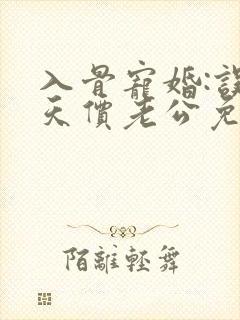 入骨寵婚:誤
天價老公免
陌離輕舞